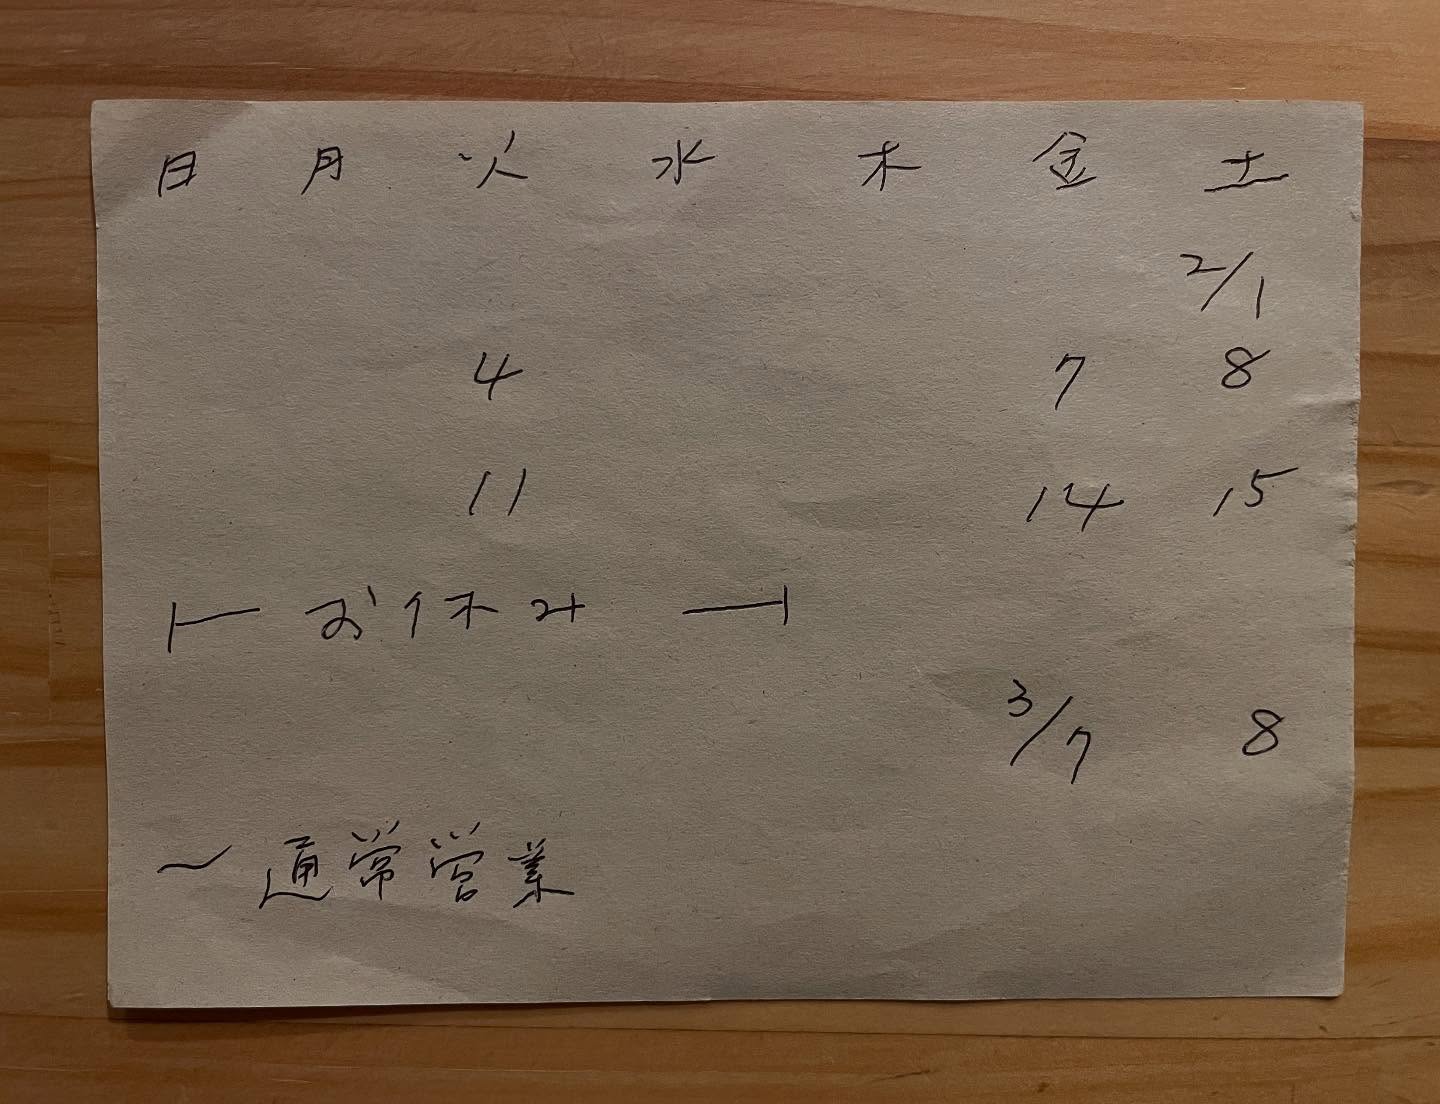 日 月 火 水 木 金 土
2/1
4 7 8
11 14 15
お休み
3/7 8
〜通常営業